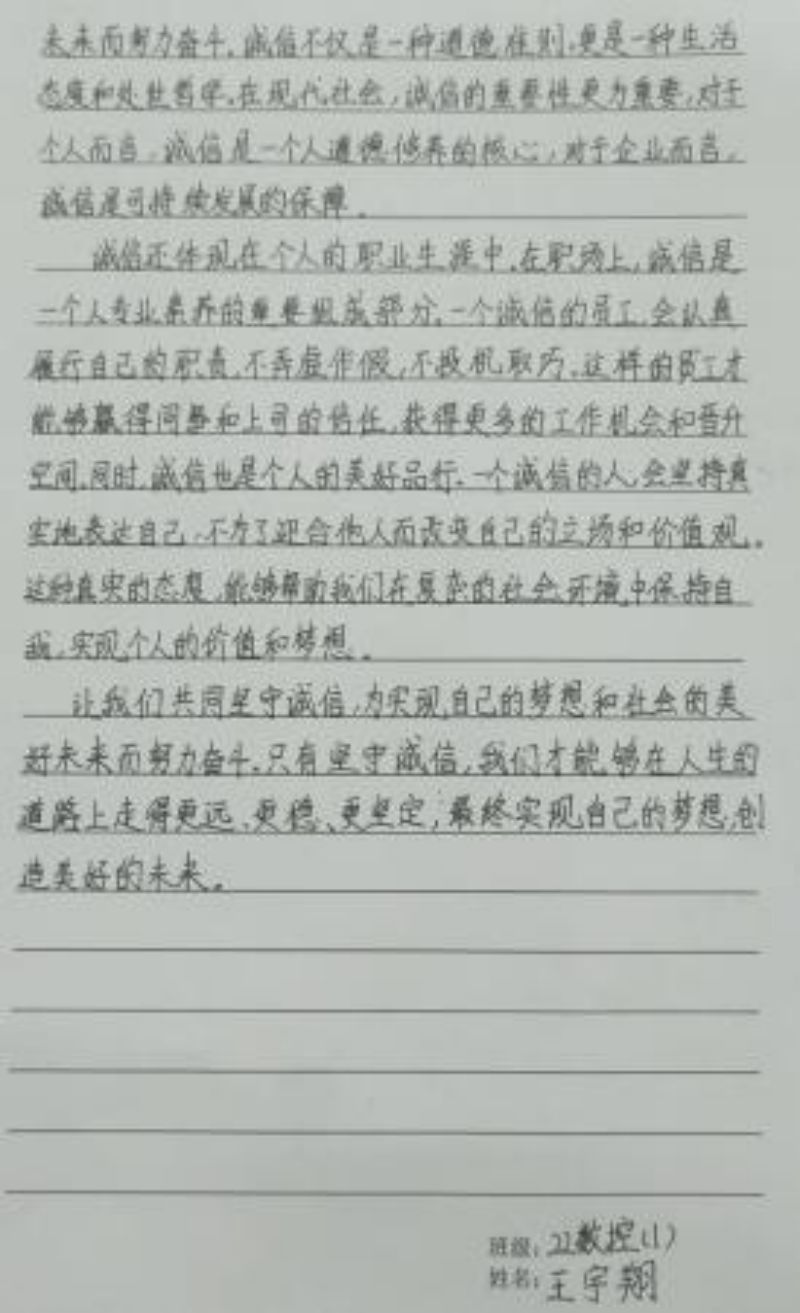 未来而努力奋斗。诚信不仅是一种道德准则,更是一种生活
态度和处世哲学。在现代社会,诚信的重要性更为重要,对于
个人而言,诚信是一个人道德修养的核心,对于企业而言,
诚信是可持续发展的保障。
诚信还体现在个人的职业生涯中。在职场上,诚信是
一个人专业素养的重要组成部分。一个诚信的员工,会认真
履行自己的职责,不弄虚作假,不投机取巧。这样的员工才
能够赢得同事和上司的信任,获得更多的工作机会和晋升
空间。同时,诚信也是个人的美好品行。一个诚信的人,会坚持真
实地表达自己,不为了迎合他人而改变自己的立场和价值观。
这种真实的态度,能够帮助我们在复杂的社会环境中保持自
我,实现个人的价值和梦想。
让我们共同坚守诚信,为实现自己的梦想和社会的美
好未来而努力奋斗。只有坚守诚信,我们才能够在人生的
道路上走得更远、更稳、更坚定,最终实现自己的梦想,创
造美好的未来。
班级:22数控(1)
姓名:王宇翔